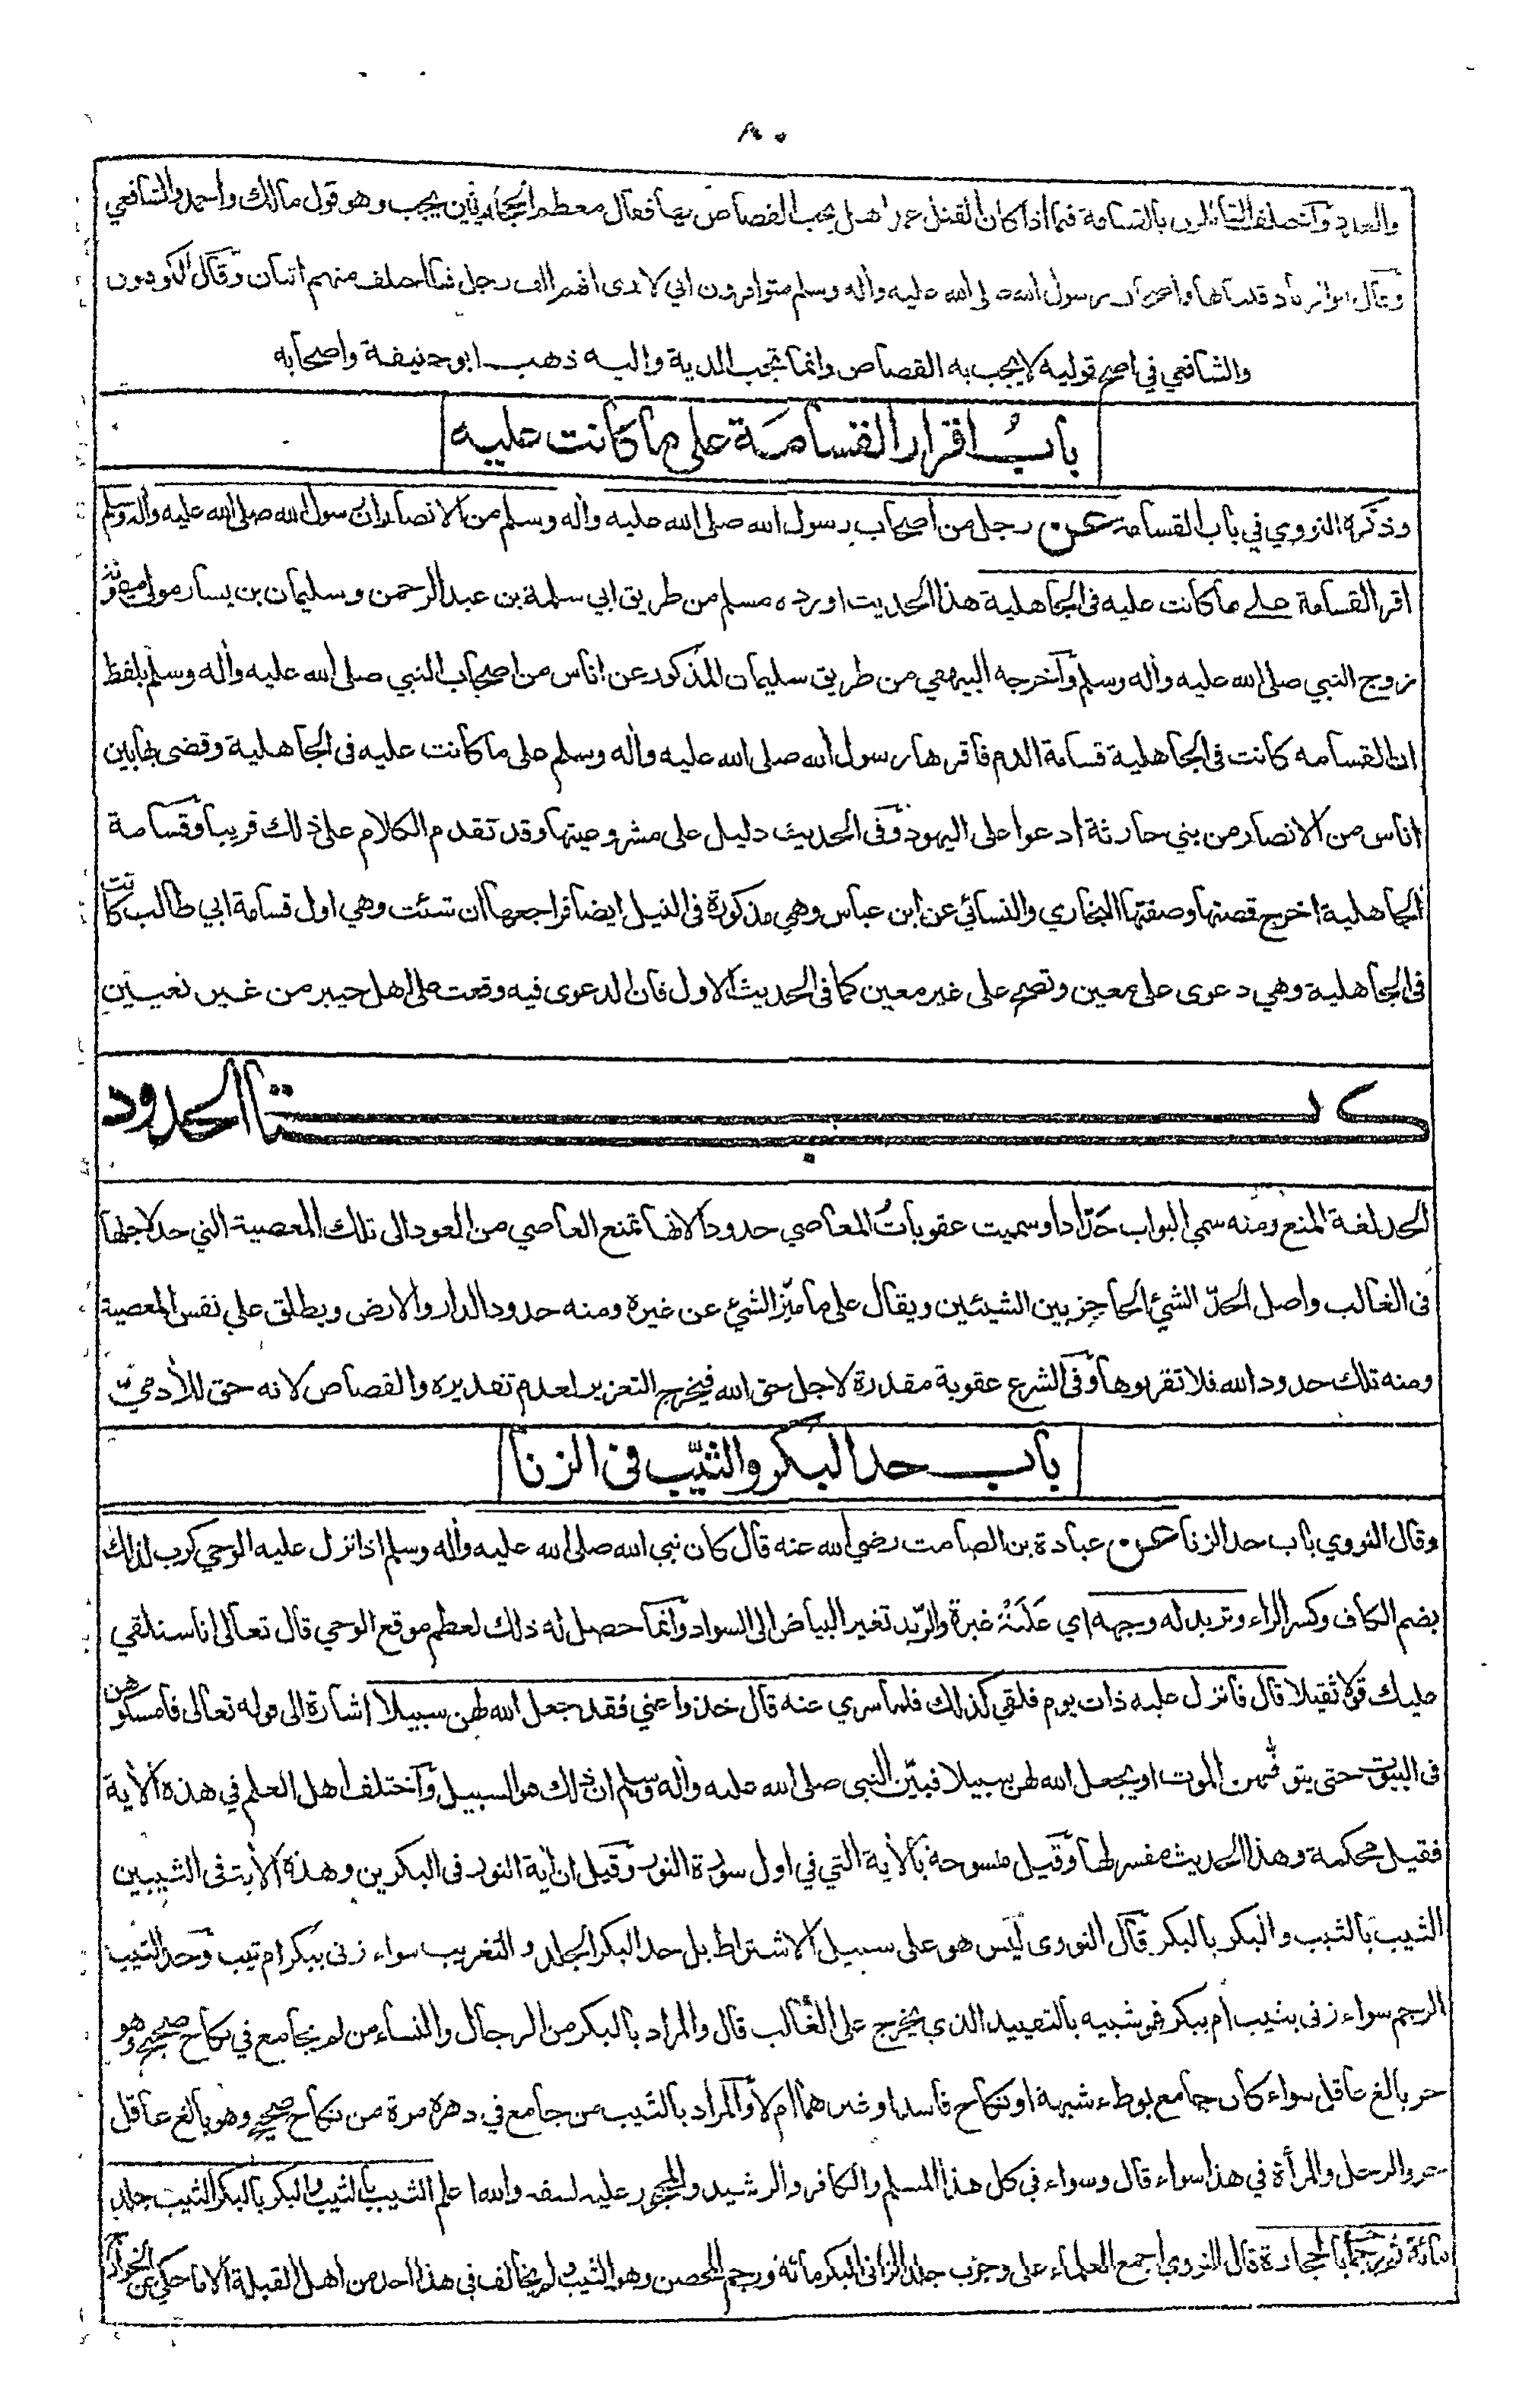 ٨٠
والعدد واختلف القائلون بالقسامة فيما اذا كان القتل عمدا هل يجب القصاص بها فقال معظم الحجازيين يجب وهو قول مالك واحمد والشافعي
وقال ابو الزناد قلنا بها واصحاب رسول الله صلى الله عليه واله وسلم متوافرون اني لارى انهم الف رجل فما اختلف منهم اثنان وقال الكوفيون
والشافعي في اصح قوليه لا يجب به القصاص وانما تجب الدية واليه ذهب ابو حنيفة واصحابه
باب اقرار القسامة على ما كانت عليه
وذكره النووي في باب القسامة عن رجل من اصحاب رسول الله صلى الله عليه واله وسلم من الانصار ان رسول الله صلى الله عليه واله وسلم
اقر القسامة على ما كانت عليه فى الجاهلية هذا الحديث اورده مسلم من طريق ابي سلمة بن عبد الرحمن وسليمان بن يسار مولى ميمونة
زوج النبي صلى الله عليه واله وسلم واخرجه البيهقي من طريق سليمان المذكور عن اناس من اصحاب النبي صلى الله عليه واله وسلم بلفظ
ان القسامه كانت فى الجاهلية قسامة الدم فاقرها رسول الله صلى الله عليه واله وسلم على ما كانت عليه فى الجاهلية وقضى بها بين
اناس من الانصار من بني حارثة ادعوا على اليهود وفى الحديث دليل على مشروعيتها وقد تقدم الكلام على ذلك قريبا وقسامة
الجاهلية اخرج قصتها وصفتها البخاري والنسائي عن ابن عباس وهي مذكورة فى النيل ايضا فراجعها ان شئت وهي اول قسامة ابي طالب كانت
فى الجاهلية وهي دعوى على معين وتصح على غير معين كما فى الحديث الاول فان الدعوى فيه وقعت على اهل خيبر من غير تعيين
كتاب الحدود
الحد لغة المنع ومنه سمي البواب حَدّادا وسميت عقوبات المعاصي حدودا لانها تمنع العاصي من العود الى تلك المعصية التي حد لاجلها
فى الغالب واصل الحدّ الشئ الحاجز بين الشيئين ويقال على ما ميّز الشئ عن غيره ومنه حدود الدار والارض ويطلق على نفس المعصية
ومنه تلك حدود الله فلا تقربوها وفى الشرع عقوبة مقدرة لاجل حق الله فيخرج التعزير لعدم تقديره والقصاص لانه حق للأدميّ
باب حد البكر والثيّب فى الزنا
وقال النووي باب حد الزنا عن عبادة بن الصامت رضي الله عنه قال كان نبي الله صلى الله عليه واله وسلم اذا نزل عليه الوحي كرب لذلك
بضم الكاف وكسر الراء وتربد له وجهه اي عَلَتْهُ غبرة والربد تغير البياض الى السواد وانما حصل له ذلك لعظم موقع الوحي قال تعالى انا سنلقي
عليك قولا ثقيلا قال فانزل عليه ذات يوم فلقي كذلك فلما سري عنه قال خذوا عني فقد جعل الله لهن سبيلا اشارة الى قوله تعالى فامسكوهن
فى البيوت حتى يتوفّهن الموت او يجعل الله لهن سبيلا فبيّن النبي صلى الله عليه واله وسلم ان ذلك هو السبيل واختلف اهل العلم في هذه الأية
فقيل محكمة وهذا الحديث مفسر لها وقيل منسوخة بالأية التي في اول سورة النور وقيل ان أية النور فى البكرين وهذه الأية فى الثيبين
الثيب بالثيب والبكر بالبكر قال النووى ليس هو على سبيل الاشتراط بل حد البكر الجلد والتغريب سواء زنى ببكر ام ثيب وحد الثيب
الرجم سواء زنى بثيب ام ببكر فهو شبيه بالتقييد الذي يخرج على الغالب قال والمراد بالبكر من الرجال والنساء من لم يجامع في نكاح صحيح وهو
حر بالغ عاقل سواء كان جامع بوطء شبهة او نكاح فاسد او غيرهما ام لا والمراد بالثيب من جامع في دهره مرة من نكاح صحيح وهو بالغ عاقل
حر والرجل والمرأة في هذا سواء قال وسواء فى كل هذا المسلم والكافر والرشيد والمحجور عليه لسفه والله اعلم الثيب بالثيب والبكر بالبكر الثيب جلد
مائة ثم رجما بالحجارة قال النووي اجمع العلماء على وجوب جلد الزانى البكر مائة ورجم المحصن وهو الثيب ولم يخالف في هذا احد من اهل القبلة الا ما حكي عن الخوارج